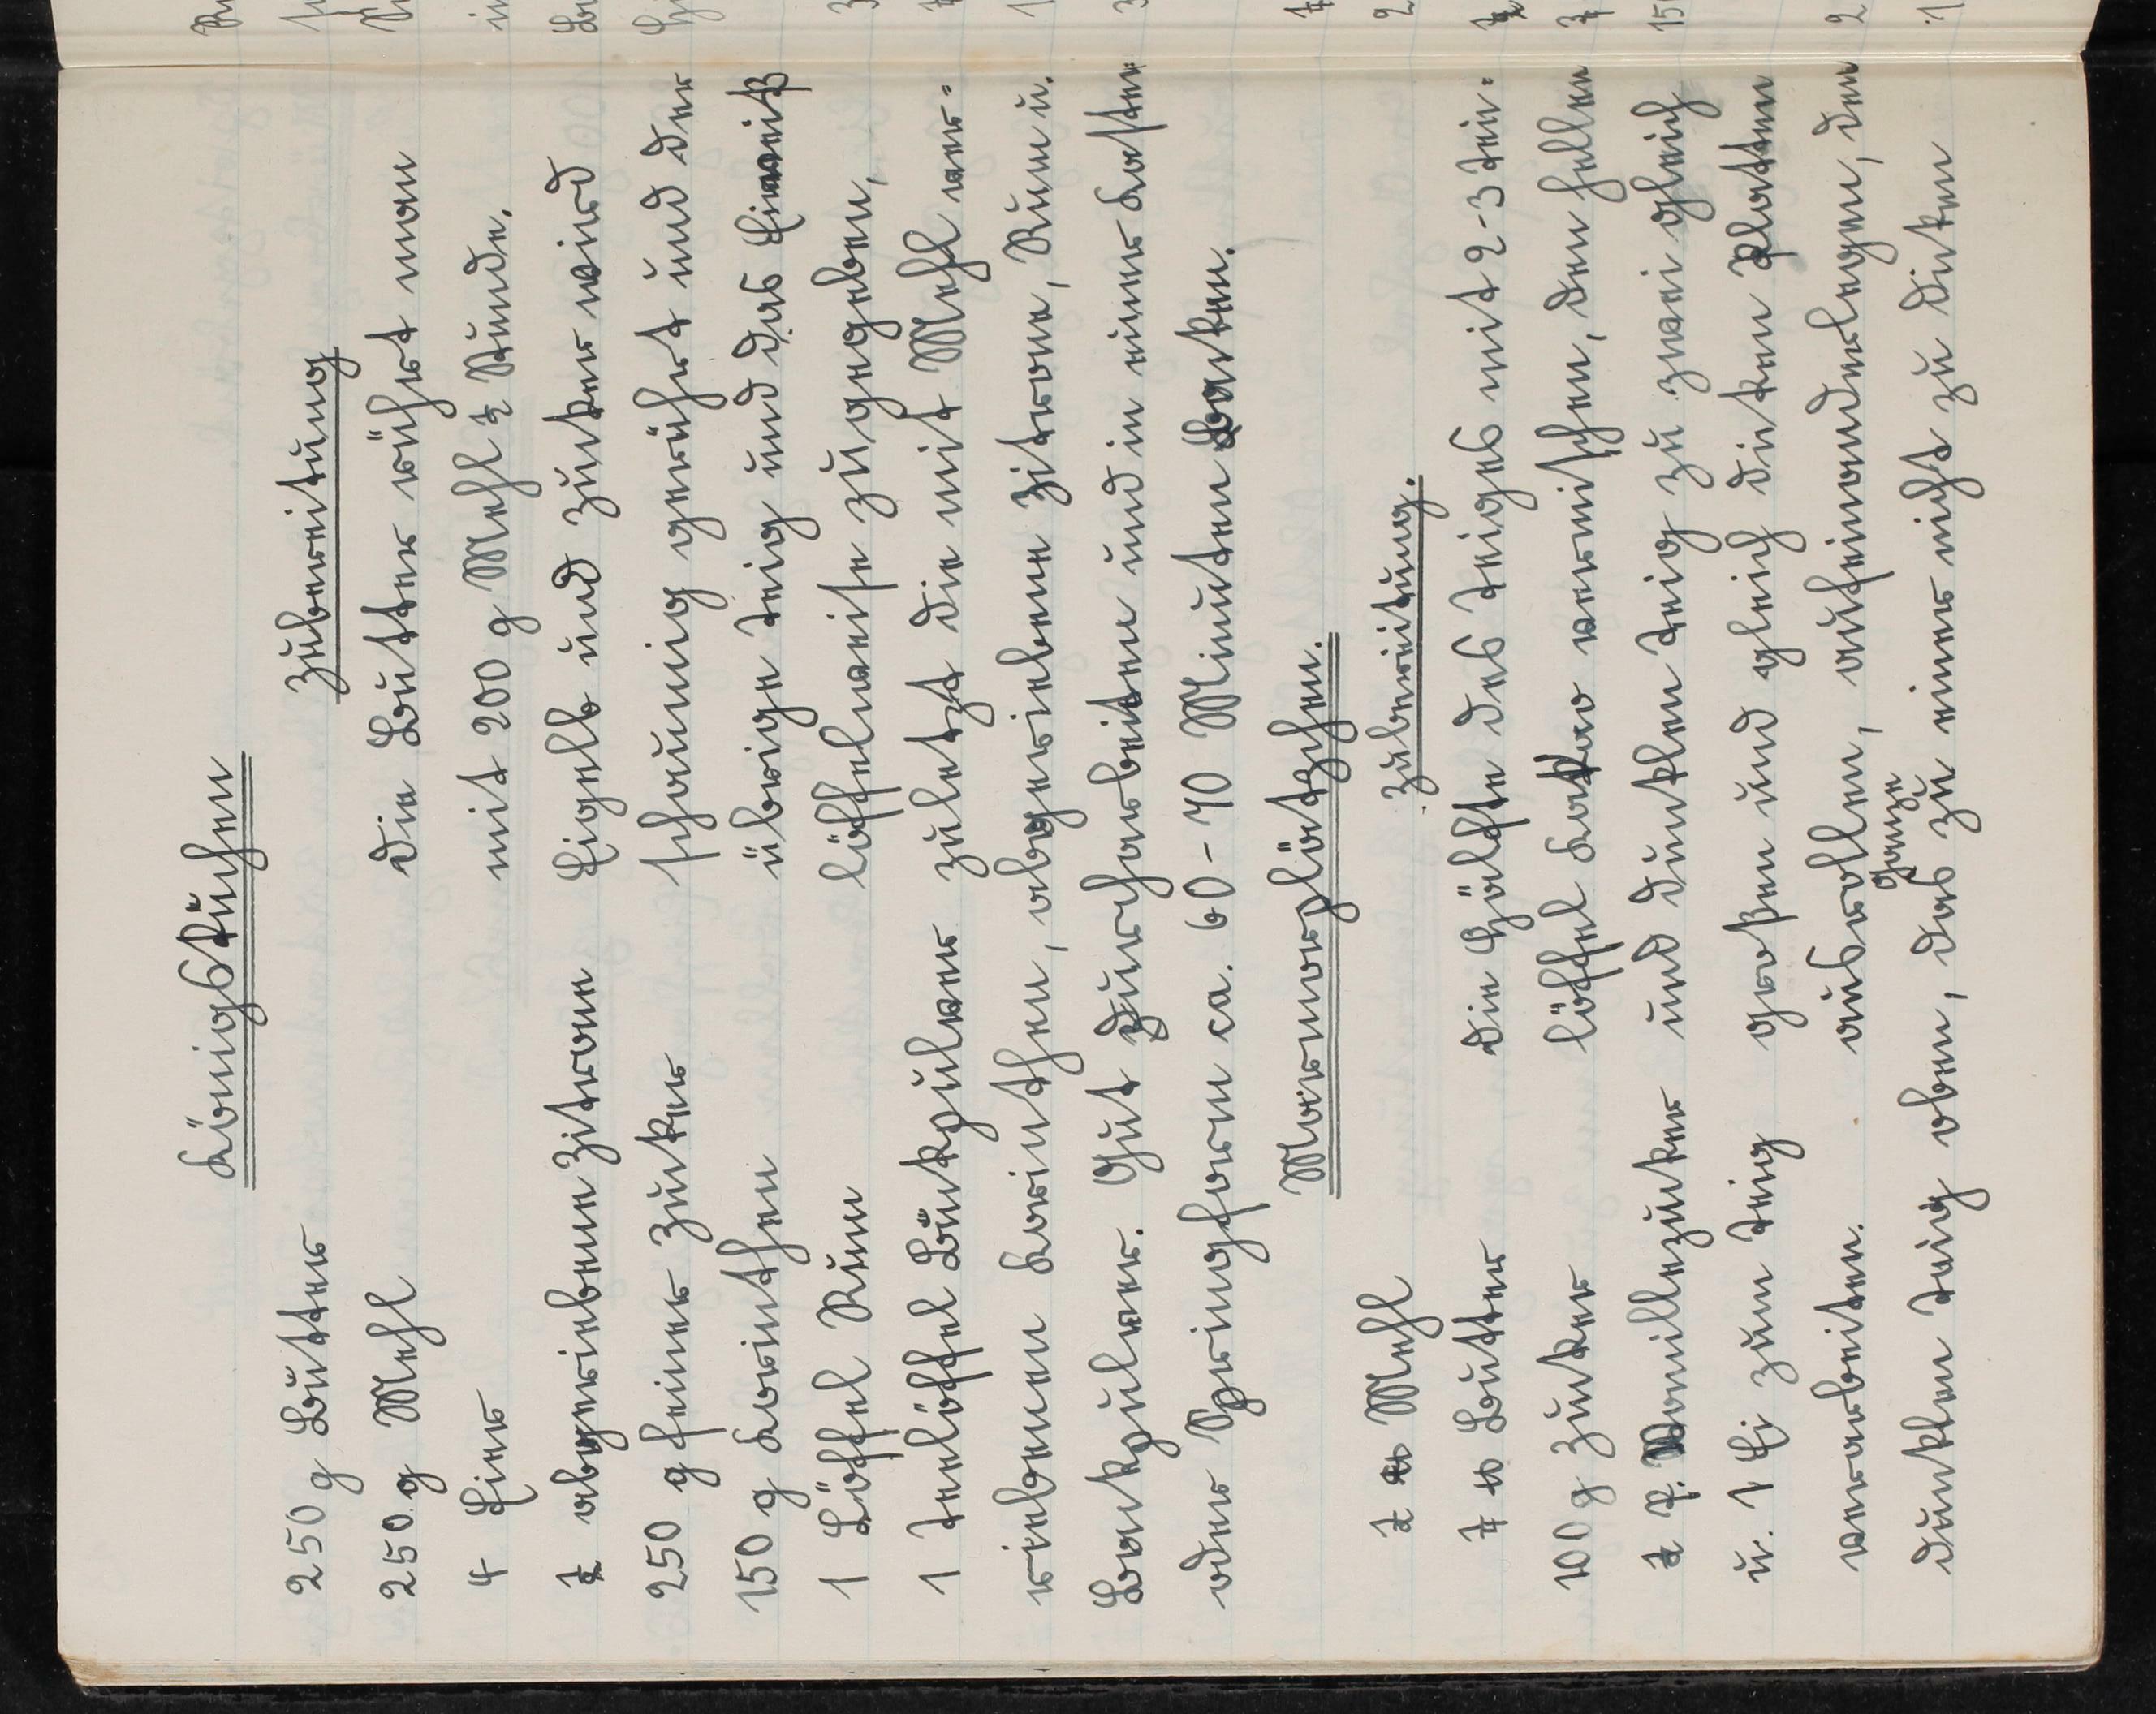 Königskuchen
Zubereitung
250 g Butter
250 g Mehl
4 Eier
½ abgeriebene Zitrone
250 g feiner Zucker
150 g Korinthen
1 Löffel Rum
1 Teelöffel Backpulver
Die Butter rührt man
mit 200 g Mehl ½ Stunde.
Eigelb und Zucker wird
schaumig gerührt und der
übrige Teig und das Eiweiß
löffelweise zugegeben,
zuletzt die mit Mehl ver-
riebenen Korinthen, abgeriebene Zitrone, Rum u.
Backpulver. Gut durcharbeiten und in einer Kasten
oder Springform ca. 60-70 Minuten backen.
Marmorplätzchen.
Zubereitung.
½ ℔ Mehl
¼ ℔ Butter
100 g Zucker
½ P. Vanillezucker
u. 1 Ei zum Teig
verarbeiten.
Die Hälfte des Teiges mit 2-3 Tee-
löffel Kakao vermischen, den hellen
und dunklen Teig zu zwei gleich
großen und gleich dicken Platten
ausrollen, aufeinanderlegen, den
dunklen Teig oben, das ganze zu einer nicht zu dicken